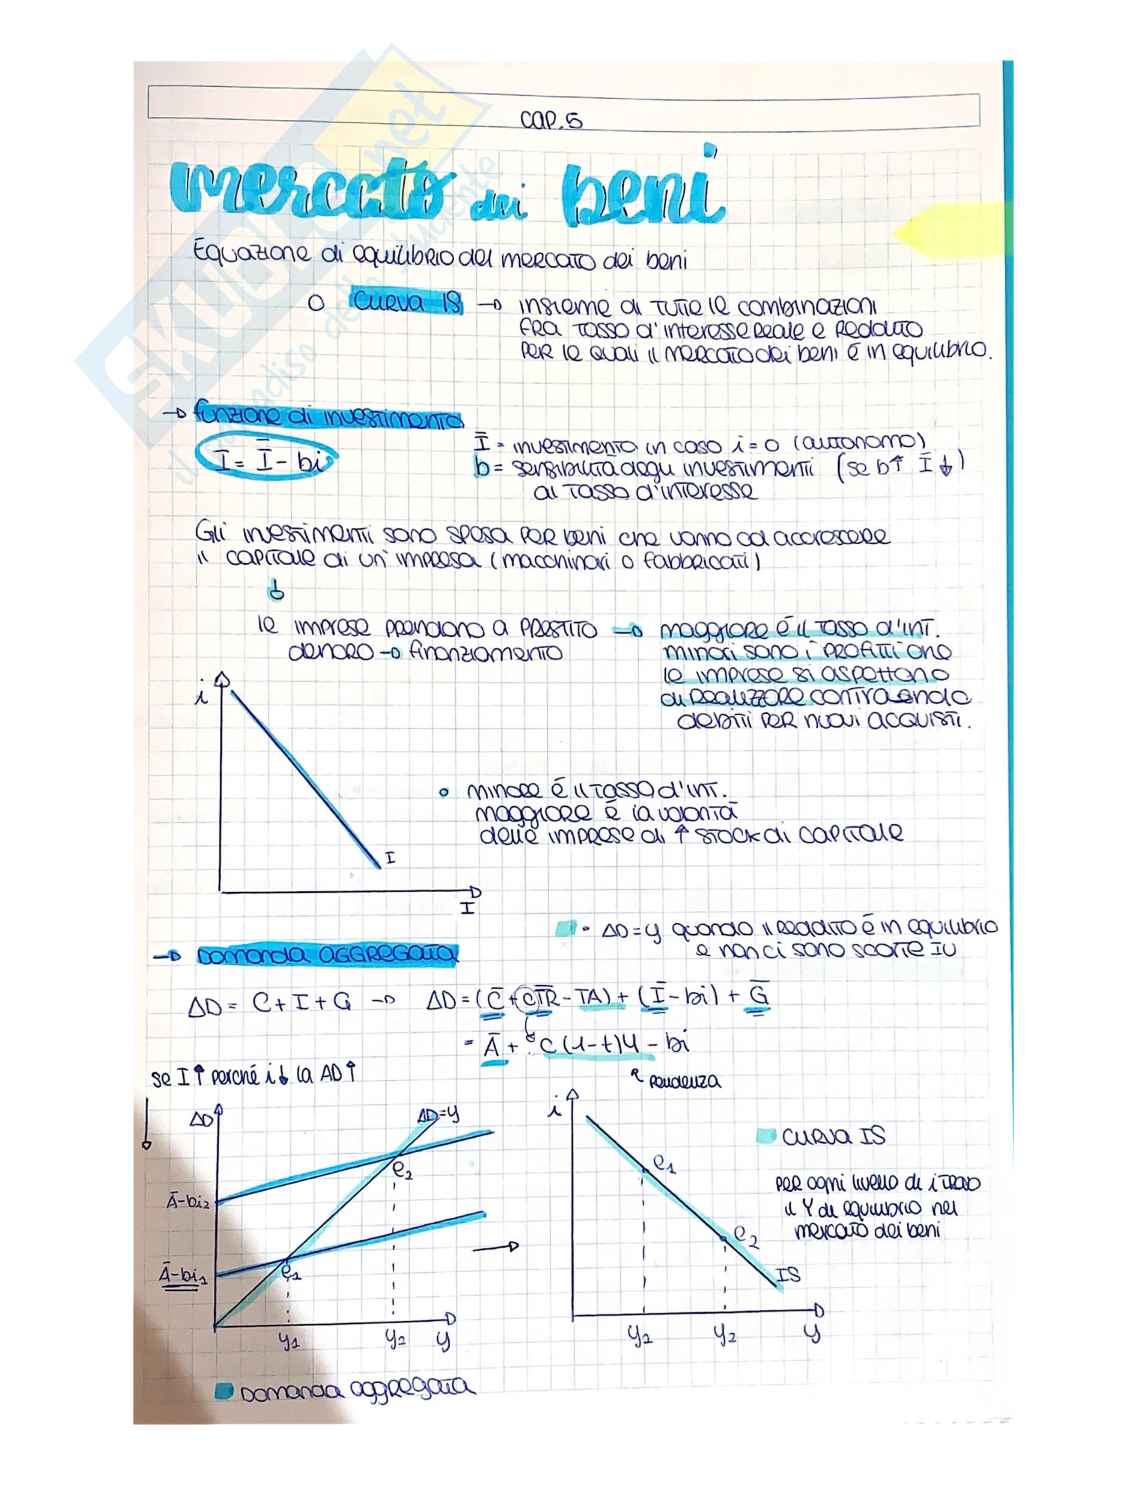 CAP. 5
mercato dei beni
Equazione di equilibrio del mercato dei beni
O Curva IS → insieme di tutte le combinazioni
fra tasso d'interesse reale e reddito
per le quali il mercato dei beni è in equilibrio.
→ funzione di investimento
I = Ī - bi
Ī = investimento in caso i = 0 (autonomo)
b = sensibilità degli investimenti (se b↑ Ī↓)
al tasso d'interesse
Gli investimenti sono spesa per beni che vanno ad accrescere
il capitale di un'impresa (macchinari o fabbricati)
↓
le imprese prendono a prestito → maggiore è il tasso d'int.
denaro → finanziamento
minori sono i profitti che
le imprese si aspettano
di realizzare contraendo
debiti per nuovi acquisti.
i
I
I
o minore è il tasso d'int.
maggiore è la volontà
delle imprese di ↑ stock di capitale
• AD = y quando il reddito è in equilibrio
e non ci sono scorte IU
→ Domanda aggregata
AD = C + I + G → AD = (C̄ + cTR̄ - TA) + (Ī - bi) + Ḡ
= Ā + c(1-t)y - bi
↖ pendenza
se I↑ perché i↓ la AD↑
AD
AD=y
e2
Ā-bi2
Ā-bi1
e1
y1 y2 y
Domanda aggregata
i
e1
e2
IS
y1 y2 y
Curva IS
per ogni livello di i trovo
il Y di equilibrio nel
mercato dei beni
SKUOLA.net
il paradiso dello studente